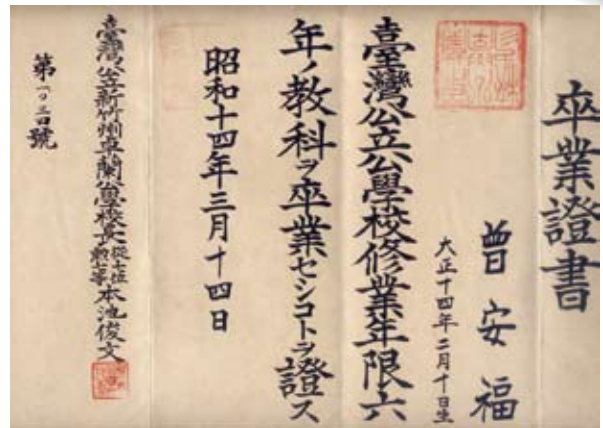 卒業證書
曾安福
大正十四年二月十日生
臺灣公立公學校修業年限六
年ノ教科ヲ卒業セシコトヲ證ス
昭和十四年三月十四日
臺灣公立新竹州奧蘭公學校長從七位勲七等本池俊文
第一〇三四號